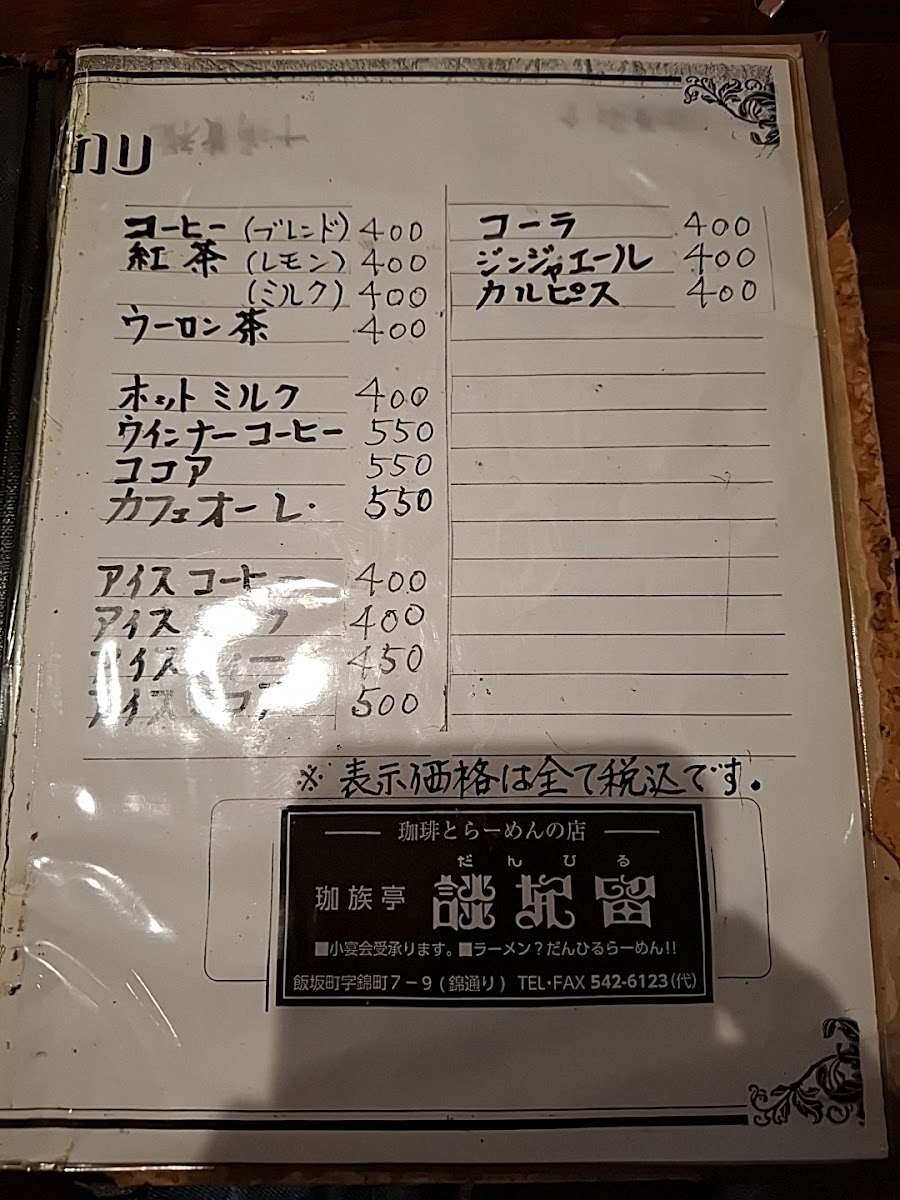 nu
コーヒー (ブレンド) 400
紅茶 (レモン) 400
(ミルク) 400
ウーロン茶 400
ホットミルク 400
ウインナーコーヒー 550
ココア 550
カフェオーレ 550
アイスコーヒー 400
アイス 400
アイス 450
アイスココア 500
コーラ 400
ジンジャエール 400
カルピス 400
※ 表示価格は全て税込です。
珈琲とらーめんの店
だんひる
珈族亭 談妣留
■小宴会受承ります。■ラーメン?だんひるらーめん!!
飯坂町字錦町7-9(錦通り) TEL・FAX 542-6123(代)